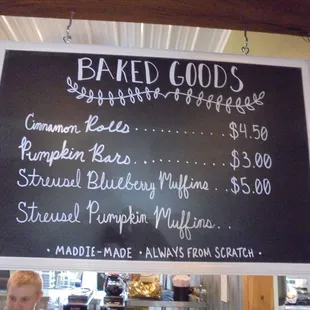 BAKED GOODS
Cinnamon Rolls............$4.50
Pumpkin Bars............$3.00
Streusel Blueberry Muffins..$5.00
Streusel Pumpkin Muffins..
• MADDIE-MADE • ALWAYS FROM SCRATCH •